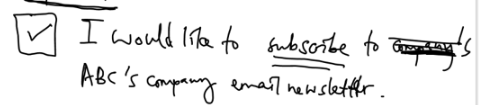 ☑ I would like to subscribe to company's
ABC's company email newsletter.